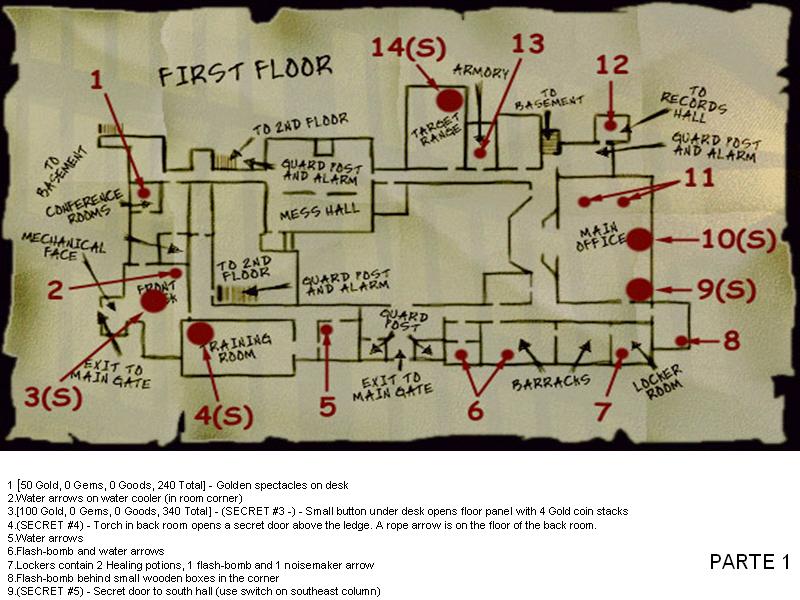 FIRST FLOOR
14(S)
13
12
1
ARMORY
TO BASEMENT
TO RECORDS HALL
TO 2ND FLOOR
TARGET RANGE
GUARD POST AND ALARM
TO BASEMENT
GUARD POST AND ALARM
CONFERENCE ROOMS
11
MESS HALL
MAIN OFFICE
10(S)
MECHANICAL FACE
TO 2ND FLOOR
GUARD POST AND ALARM
2
FRONT
9(S)
GUARD POST
TRAINING ROOM
8
EXIT TO MAIN GATE
EXIT TO MAIN GATE
BARRACKS
LOCKER ROOM
3(S)
4(S)
5
6
7
1 [50 Gold, 0 Gems, 0 Goods, 240 Total] - Golden spectacles on desk
2.Water arrows on water cooler (in room corner)
3.[100 Gold, 0 Gems, 0 Goods, 340 Total] - (SECRET #3 -) - Small button under desk opens floor panel with 4 Gold coin stacks
4.(SECRET #4) - Torch in back room opens a secret door above the ledge. A rope arrow is on the floor of the back room.
5.Water arrows
6.Flash-bomb and water arrows
7.Lockers contain 2 Healing potions, 1 flash-bomb and 1 noisemaker arrow
8.Flash-bomb behind small wooden boxes in the corner
9.(SECRET #5) - Secret door to south hall (use switch on southeast column)
PARTE 1